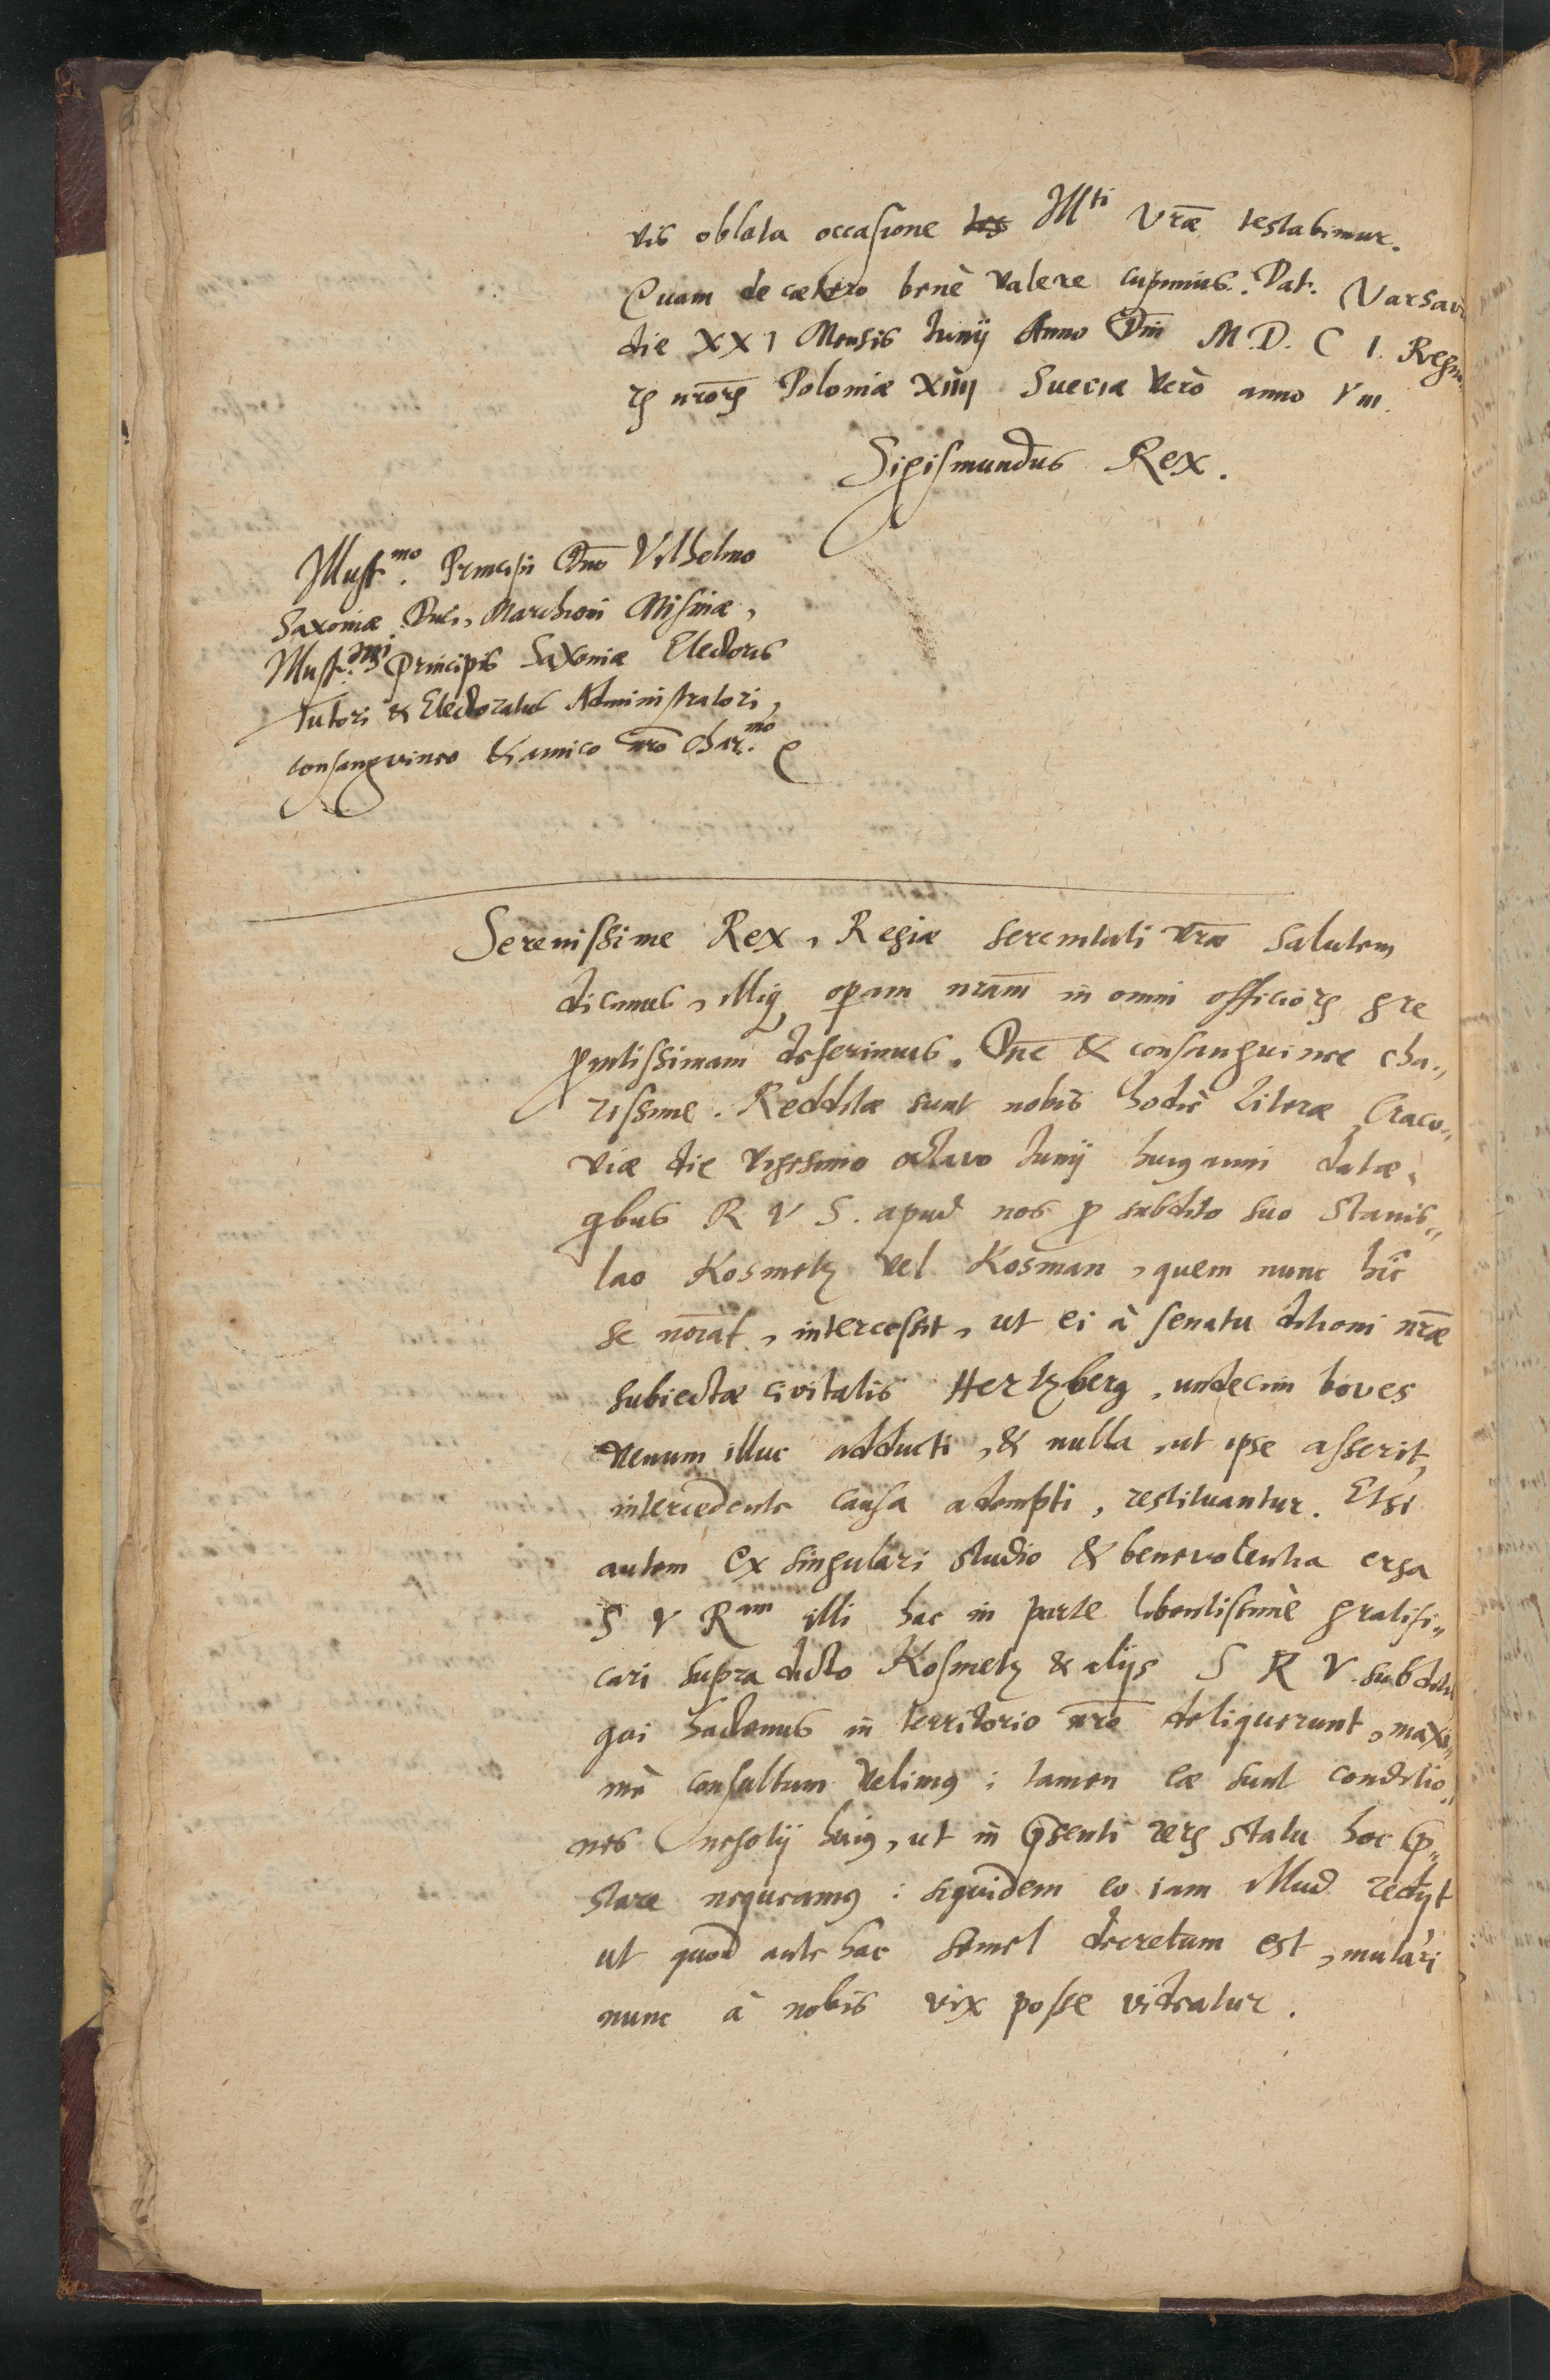 vis oblata occasione Ill^ti Vrae testabimur.
Quam de caetero benè valere cupimus. Dat. Varsavi
die XXI Mensis Junij Anno Dni M.D.C I. Regno
rꝫ nrorꝫ Poloniae XIIII Sueciae verò anno VIII.
Sigismundus Rex.
Illust^mo. Principi Dno Vilhelmo
Saxoniae Duci, Marchioni Misniae,
Illust^mi. Principis Saxoniae Electoris
Tutori & Electoratus Administratori,
consangvineo & amico nro Char^mo.
Serenissime Rex, Regiae serenitati vrae salutem
dicimus, illiq; opam nram in omni officiorꝫ gre
promtissimam deferimus. Dne & consanguinee cha„
rissime. Redditae sunt nobis hodiè literae Craco„
viae die vigesimo octavo Junij huius anni datae,
qbus R V S. apud nos p subdito suo Stanis„
lao Kosmetz vel Kosman, quem nunc hic
se noiat, intercessit, ut ei à senatu ditioni nrae
subiectae civitatis Hertzberg, undecim boves
venum illuc adducti, & nulla, ut ipse asserit,
intercedente causa adempti, restituantur. Etsi
autem ex singulari studio & benevolentia erga
S V R^am illi hac in parte libentissimè gratifi„
cari supra dicto Kosmetz & alijs S R V. subditis
qui hactenus in territorio nro deliquerunt, maxi„
mè consultum velimus; tamen eae sunt conditio„
nes negotij huius, ut in psenti rerꝫ statu hoc p„
stare nequeamus: siquidem eo iam illud redijt
ut quod ante hac semel decretum est, mutari
nunc à nobis vix posse videatur.